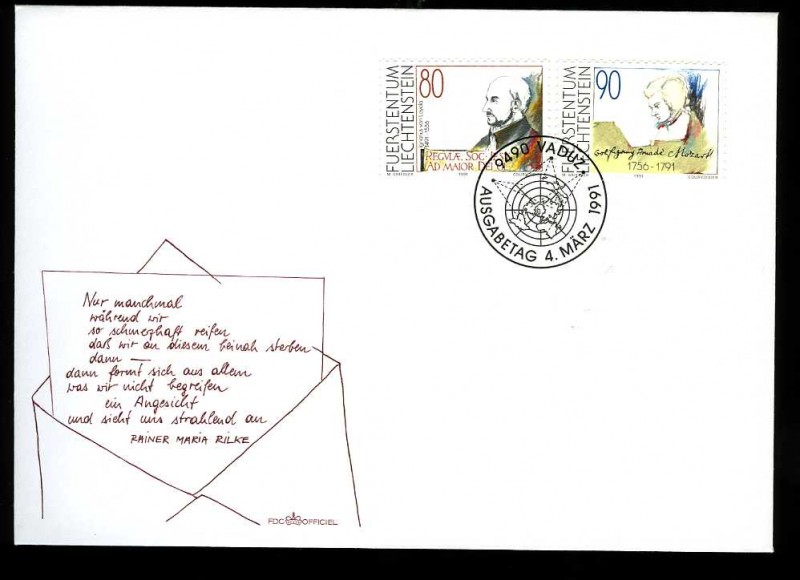 FUERSTENTUM
LIECHTENSTEIN
80
Ignatius von Loyola
1491 - 1556
REGULÆ SOC. 
(AD MAIOR DEI
1991
COURVOISIER
FUERSTENTUM
LIECHTENSTEIN
90
Wolfgang Amadé Mozart
1756 - 1791
1991
COURVOISIER
9490 VADUZ
AUSGABETAG 4. MÄRZ 1991
Nur manchmal
während wir
so schmerzhaft reifen
daß wir an diesem beinah sterben
dann —
dann formt sich aus allem
was wir nicht begreifen
ein Angesicht
und sieht uns strahlend an
RAINER MARIA RILKE
FDC OFFICIEL